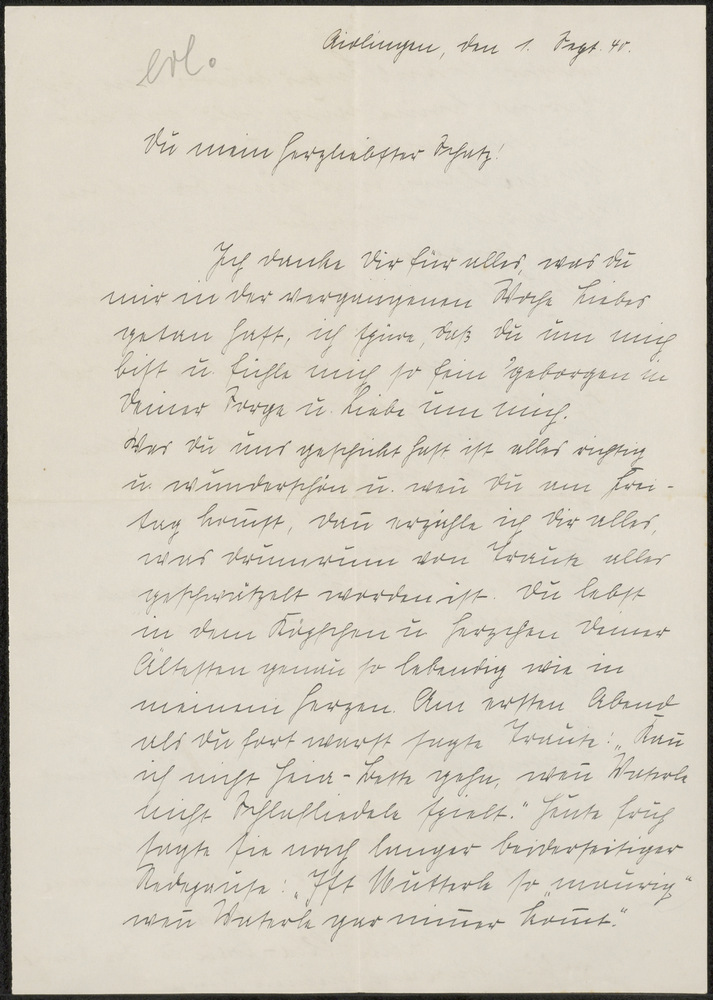 Aidlingen, den 1. Sept. 40.
erl.
Du mein herzliebster Schatz!
Ich danke Dir für alles, was Du
mir in der vergangenen Woche Liebes
getan hast, ich spüre, daß Du um mich
bist u. fühle mich so fein geborgen in
Deiner Sorge u. Liebe um mich.
Was Du uns geschickt hast ist alles richtig
u. wunderschön u. weñ Du am Frei-
tag kom̃st, dañ erzähle ich Dir alles,
was drumrum von Traute alles
geschwätzelt worden ist. Du lebst
in dem Köpfchen u. Herzchen Deiner
Ältesten genau so lebendig wie in
meinem Herzen. Am ersten Abend
als Du fort warst sagte Traute: „Kañ
ich nicht heia-Bette gehn, weñ Vaterle
nicht Schlafliedele spielt." Heute früh
sagte sie nach langer beiderseitiger
Redepause: „Ist Mutterle so „maurig"
weñ Vaterle gar nim̃er kom̃t."